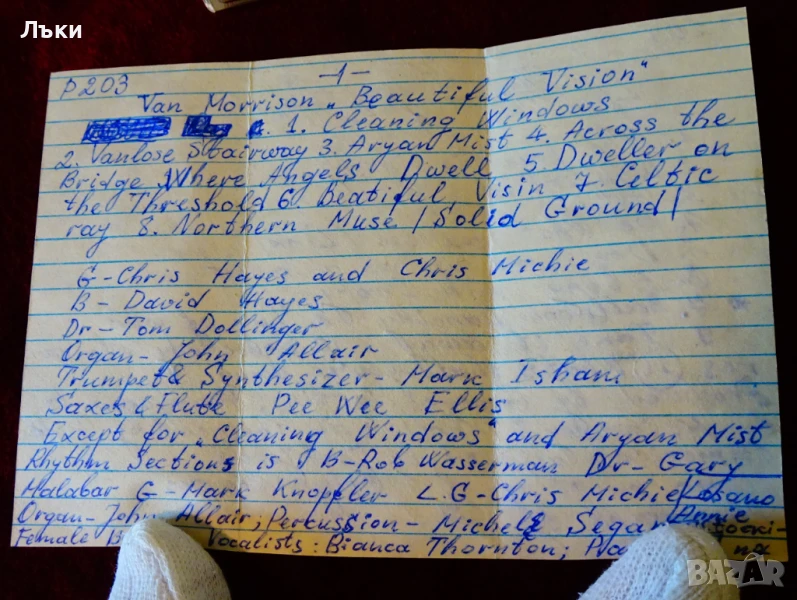 Лъки
P203
-1-
Van Morrison „Beautiful Vision"
1. Cleaning Windows
2. Vanlose Stairway 3. Aryan Mist 4. Across the
Bridge Where Angels Dwell 5. Dweller on
the Threshold 6. Beatiful Visin 7. Celtic
ray 8. Northern Muse /Solid Ground/
G-Chris Hayes and Chris Michie
B-David Hayes
Dr-Tom Dollinger
Organ-John Allair
Trumpet & Synthesizer-Mark Isham
Saxes & Flute Pee Wee Ellis
Except for „Cleaning Windows" and Aryan Mist
Rhythm Sections is B-Rob Wasserman Dr-Gary
Malabar G-Mark Knopfler L.G-Chris Michie Losano
Organ-John Allair; Percussion-Michele Segan Annie
Female Vocalists: Bianca Thornton;
BAZAR